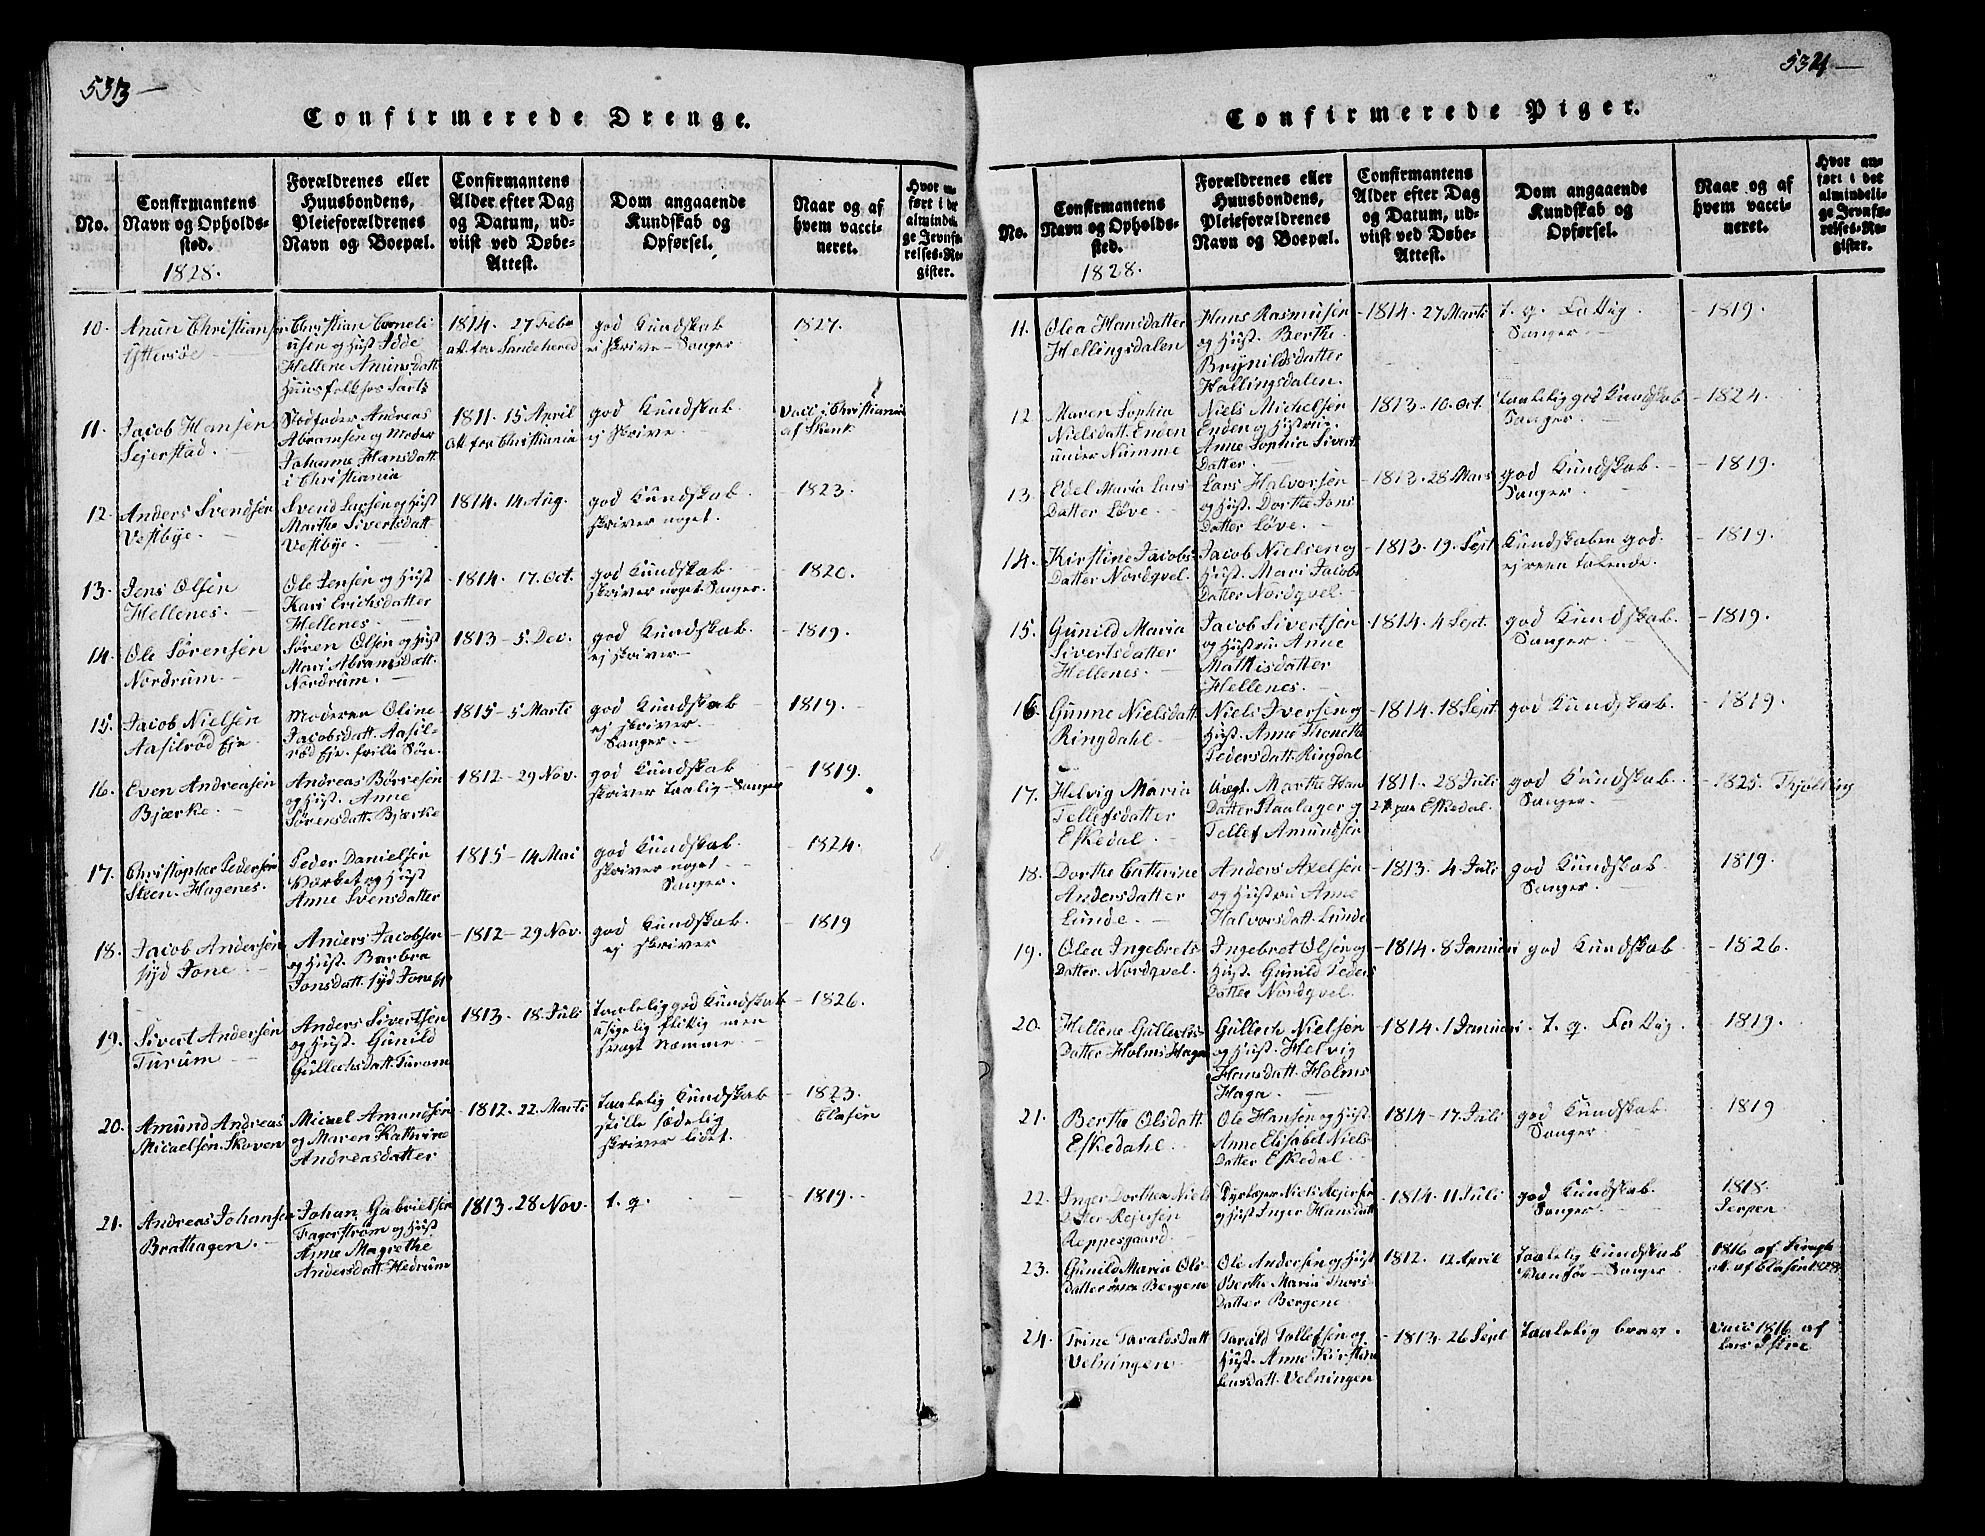 533 —
Confirmerede Drenge.
No.
Confirmantens
Navn og Opholds-
sted.
1828.
Forældrenes eller
Huusbondens,
Pleieforældrenes
Navn og Boepæl.
Confirmantens
Alder efter Dag
og Datum, ud-
viist ved Døbe-
Attest.
Dom angaaende
Kundskab og
Opførsel.
Naar og af
hvem vacci-
neret.
Hvor an-
ført i det
almindeli-
ge Jevnfø-
relses-Re-
gister.
10. Anun Christiansen
Yttersøe
Christian Corneli
usen og Hust
Hellene Amunsdatt
Huusfolk hos
1814. 27 Feb
att fra Sandeherred
god Kundskab
ej skrive - Sanger
1827.
11. Jacob Hansen
Sejerstad.
Stedfader Andreas
Abramsen og Moder
Johanne Hansdatt
i Christiania
1811. 15 April
att fra Christiania
god Kundskab
ej skrive.
Vacc. i Christiania
af Skenk
12. Anders Svendsen
Vestbye.
Svend Larsen og Hust
Marthe Sivertsdatt
Vestbye.
1814. 14 Aug.
god Kundskab.
skriver noget.
1823.
13. Jens Olsen
Hellenes.
Ole Jensen og Hust
Kari Erichsdatter
Hellenes
1814. 17. Oct.
god Kundskab
skriver noget. Sanger.
1820.
14. Ole Sørensen
Nordrum
Søren Olsen og Hust
Mari Abramsdatt.
Nordrum.
1813 - 5. Dec.
god Kundskab.
ej skriver
1819.
15. Jacob Nielsen
Aasilrød Eje.
Moderen Oline
Jacobsdatt. Aasil-
rød Eje. frilli Søn
1815 - 5 Marti
god Kundskab
ej skriver.
Sanger.
1819.
16. Even Andreasen
Bjerke.
Andreas Børresen
og Hust. Anne
Sørensdatt. Bjærke
1812 - 29 Nov.
god Kundskab
skriver taalig - Sanger
1819.
17. Christopher Pedersen
Steen - Hagenes.
Peder Danielsen
og Hust
Anne Svensdatter
1815 - 14 Mai
god Kundskab.
skriver noget
Sanger.
1824.
18. Jacob Andersen
syd Jone
Anders Jacobsen
og Hust. Barbra
Jonsdatt. syd Jone
1812 - 29 Nov.
god Kundskab.
ej skriver
1819
19. Sivert Andersen
Turum
Anders Sivertsen
og Hust. Gunild
Gullechsdatt. Turom
1813. 18. Juli
taalelig god Kundskab
usigelig flitig men
svagt Nemme
1826.
20. Amund Andreas
Micaelsen. Skoven
Micael Amundsen
og Maren Kathrine
Andreasdatter
1812. 22. Marti
taalelig Kundskab
stille sædelig
skriver lidet.
1823.
Clasen
21. Andreas Johansen
Brathagen.
Johan Gabrielsen
Fagerstrøm og Hust
Anne Magrethe
Andersdatt. Hedrum
1813. 28 Nov.
t. g.
1819.
534 —
Confirmerede Piger.
No.
Confirmantens
Navn og Opholds-
sted.
1828.
Forældrenes eller
Huusbondens,
Pleieforældrenes
Navn og Boepæl.
Confirmantens
Alder efter Dag
og Datum, ud-
viist ved Døbe-
Attest.
Dom angaaende
Kundskab og
Opførsel.
Naar og af
hvem vacci-
neret.
Hvor an-
ført i det
almindeli-
ge Jevnfø-
relses-Re-
gister.
11. Olea Hansdatter
Hellingsdalen
Hans Rasmusen
og Hust. Berthe
Brynildsdatter
Hallingsdalen.
1814. 27 Marti
t. g. Fattig.
Sanger.
1819.
12. Maren Sophia
Nielsdatt. Enden
under Numme
Niels Michelsen
Enden og Hustrue
Anne Sophia Siverts
Datter
1813 - 10. Oct.
taalelig god Kundskab
Sanger.
1824.
13. Edel Maria Lars
Datter Løve
Lars Halvorsen
og Hust. Dorthe Jons
Datter Løve.
1813 - 28 Mars
god Kundskab.
Sanger.
1819.
14. Kirstine Jacobs
Datter Nordqvel.
Jacob Nielsen og
Hust. Mari Jacobs
Datter Nordqvel
1813. 19. Sept
Kundskaben god.
ej reen talende.
1819.
15. Gunild Maria
Sivertsdatter
Hellenes
Jacob Sivertsen
og Hustru Anne
Mathisdatter
Hellenes.
1814. 4 Sept.
god Kundskab.
Sanger.
1819.
16. Gunne Nielsdatt
Ringdahl
Niels Iversen og
Hust. Anne Thonette
Pedersdatt. Ringdal
1814. 18 Sept.
god Kundskab.
1819.
17. Helvig Maria
Tellefsdatter
Eskedal
Marthe Han
Datter Staalager og
Tellef Amundsen
1811. 28 Juli
paa Eskedal.
god Kundskab.
Sanger.
1825. Thjølling
18. Dorthe Cathrine
Andersdatter
Lunde.
Anders Axelsen
og Hustru Anne
Halvorsdatt. Lunde
1813. 4 Juli
god Kundskab
Sanger.
1819.
19. Olea Ingebrets
Datter. Nordqvel.
Ingebret Olsen og
Hust. Gunild Peders
Datter Nordqvel.
1814. 8 Januari
god Kundskab
1826.
20. Hellene Gullechs
Datter Holms Haga
Gullech Nielsen
og Hust. Helvig
Hansdatt. Holms
Haga.
1814. 1 Januari
t. g. Fattig.
1819.
21. Berthe Olsdatt.
Eskedahl.
Ole Hansen og Hust.
Anne Elisabet Niels
Datter Eskedal.
1814 - 17 Juli
god Kundskab.
Sanger
1819
22. Inger Dorthea Niels
Datter Rejersen
Reppesgaard.
Niels Rejersen
og Hust Inger Hansdatt
1814. 11 Juli
god Kundskab.
Sanger.
1818.
23. Gunild Maria Ols
datter Bergene
Ole Andersen og Hust
Berthe Maria Thors
Datter Bergene
1812. 12 April
taalelig Kundskab
Sanger
1816 af
att. af Clasen 1828.
24. Trine Taraldsdatt
Velningen
Tarald Tollefsen og
Hust. Anne Kirstine
Velningen
1813. 26 Sept
taalelig brav.
vacc 1816 af
Lars Istre